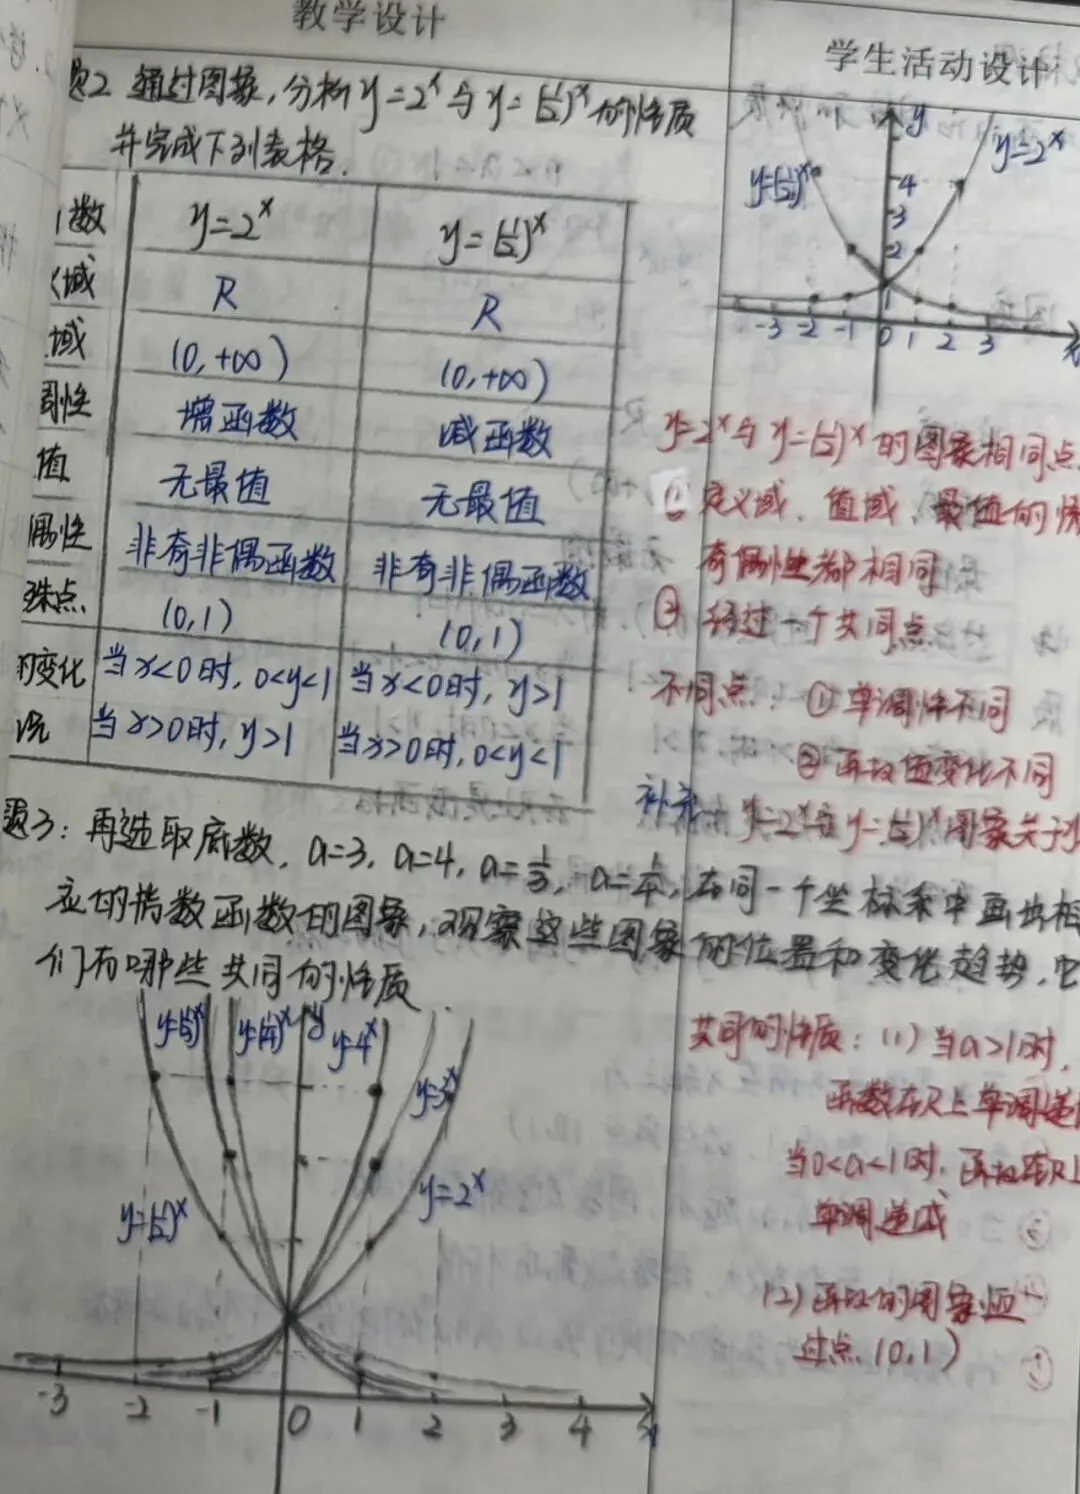 教学设计
题2 通过图象,分析y=2^x与y=(1/2)^x的性质
并完成下列表格.
数 y=2^x y=(1/2)^x
域 R R
域 (0,+∞) (0,+∞)
调性 增函数 减函数
值 无最值 无最值
偶性 非奇非偶函数 非奇非偶函数
殊点 (0,1) (0,1)
的变化 当x<0时,0<y<1 当x<0时,y>1
况 当x>0时,y>1 当x>0时,0<y<1
题3:再选取底数,a=3,a=4,a=1/3,a=1/4,在同一个坐标系中画出相
应的指数函数的图象,观察这些图象的位置和变化趋势,它
们有哪些共同的性质
y=(1/3)^x y=(1/4)^x y y=4^x
y=3^x
y=(1/2)^x y=2^x
-3 -2 -1 0 1 2 3 4 x
学生活动设计
y
y=(1/2)^x y=2^x
4
3
2
1
-3 -2 -1 0 1 2 3 x
y=2^x与y=(1/2)^x的图象相同点
① 定义域、值域、最值的情
奇偶性都相同
② 经过一个共同点
不同点:①单调性不同
②函数值变化不同
补充:y=2^x与y=(1/2)^x图象关于y
共同的性质:(1)当a>1时,
函数在R上单调递
当0<a<1时,函数在R上
单调递减
(2)函数的图象恒
过点(0,1)